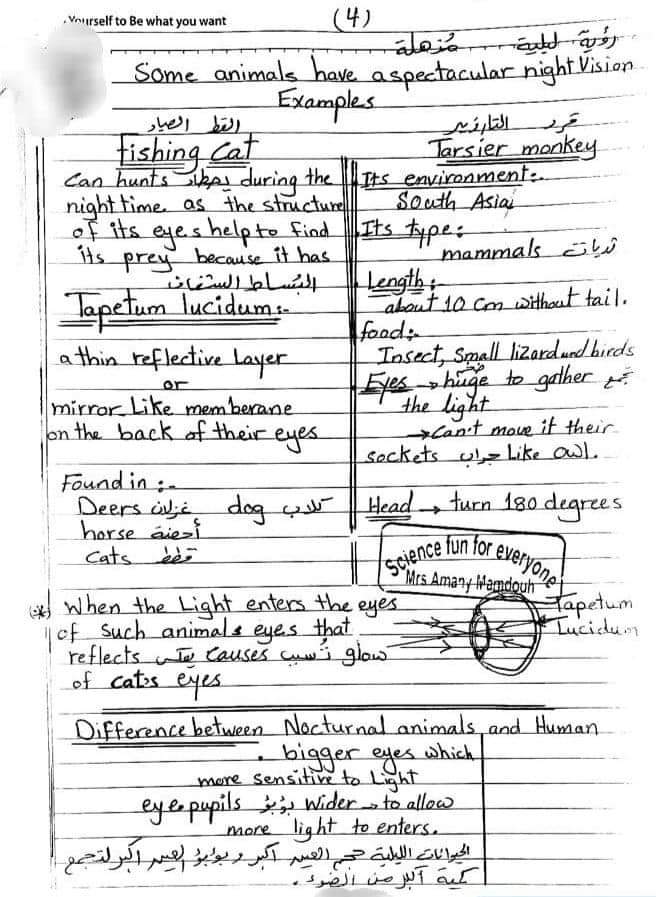 Yourself to Be what you want
(4)
رؤية ليلية مُذهلة
Some animals have a spectacular night Vision
Examples
القط الصياد
fishing Cat
Can hunts يصطاد during the
night time as the structure
of its eyes help to find
its prey because it has
البساط الشفاف
Tapetum lucidum:-
a thin reflective Layer
or
mirror Like memberane
on the back of their eyes
Found in :-
Deers غزلان dog كلاب
horse أحصنة
Cats قطط
قرد التارزير
Tarsier monkey
Its environment:-
South Asia
Its type:
mammals ثديات
Length:
about 10 Cm without tail.
food:-
Insect, Small lizard and birds
Eyes → huge ضخم to gather تجمع
the light
→ Can't move it their
sockets جراب Like owl.
Head → turn 180 degrees
Science fun for everyone
Mrs Amany Mamdouh
(*) When the Light enters the eyes
of such animals eyes that
reflects causes تُسبب glow
of cat's eyes
Tapetum
Lucidum
Difference between Nocturnal animals and Human
. bigger eyes which
more sensitive to Light
eye pupils بؤبؤ wider → to allow
more light to enters.
الحيوانات الليلية حجم العين أكبر وبؤبؤ العين أكبر لتجمع
كمية أكبر من الضوء.